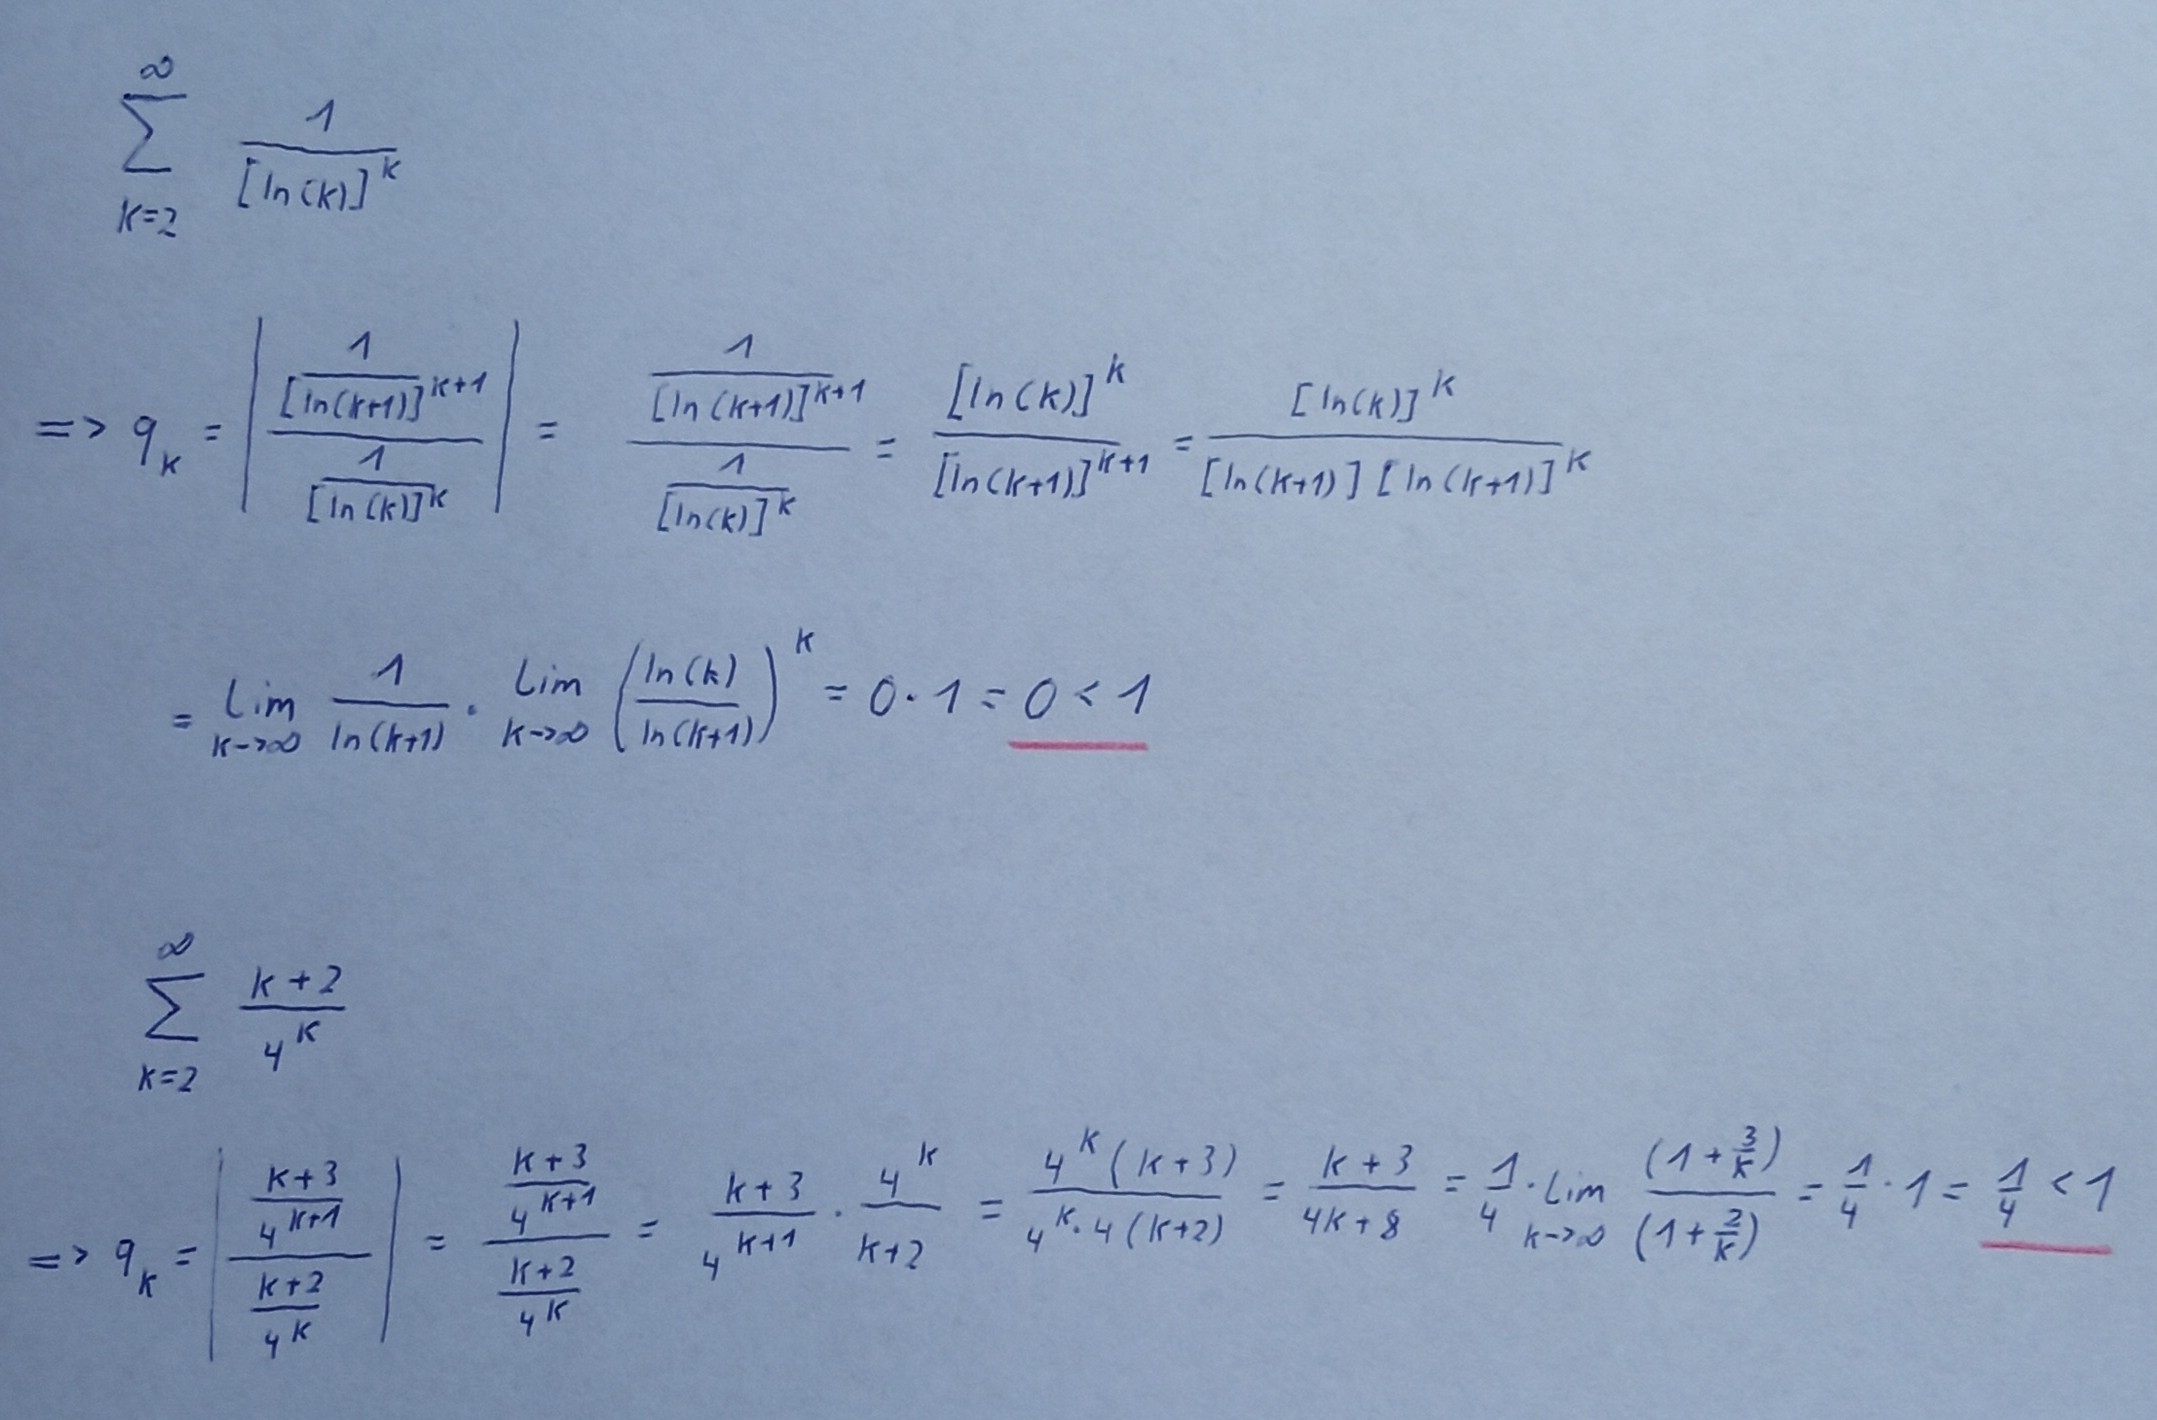 $\sum_{k=2}^{\infty} \frac{1}{[\ln(k)]^k}$
$\Rightarrow q_k = \left| \frac{\frac{1}{[\ln(k+1)]^{k+1}}}{\frac{1}{[\ln(k)]^k}} \right| = \frac{\frac{1}{[\ln(k+1)]^{k+1}}}{\frac{1}{[\ln(k)]^k}} = \frac{[\ln(k)]^k}{[\ln(k+1)]^{k+1}} = \frac{[\ln(k)]^k}{[\ln(k+1)][\ln(k+1)]^k}$
$= \lim_{k \to \infty} \frac{1}{\ln(k+1)} \cdot \lim_{k \to \infty} \left( \frac{\ln(k)}{\ln(k+1)} \right)^k = 0 \cdot 1 = \underline{0 < 1}$
$\sum_{k=2}^{\infty} \frac{k+2}{4^k}$
$\Rightarrow q_k = \left| \frac{\frac{k+3}{4^{k+1}}}{\frac{k+2}{4^k}} \right| = \frac{\frac{k+3}{4^{k+1}}}{\frac{k+2}{4^k}} = \frac{k+3}{4^{k+1}} \cdot \frac{4^k}{k+2} = \frac{4^k(k+3)}{4^k \cdot 4(k+2)} = \frac{k+3}{4k+8} = \frac{1}{4} \cdot \lim_{k \to \infty} \frac{(1+\frac{3}{k})}{(1+\frac{2}{k})} = \frac{1}{4} \cdot 1 = \underline{\frac{1}{4} < 1}$